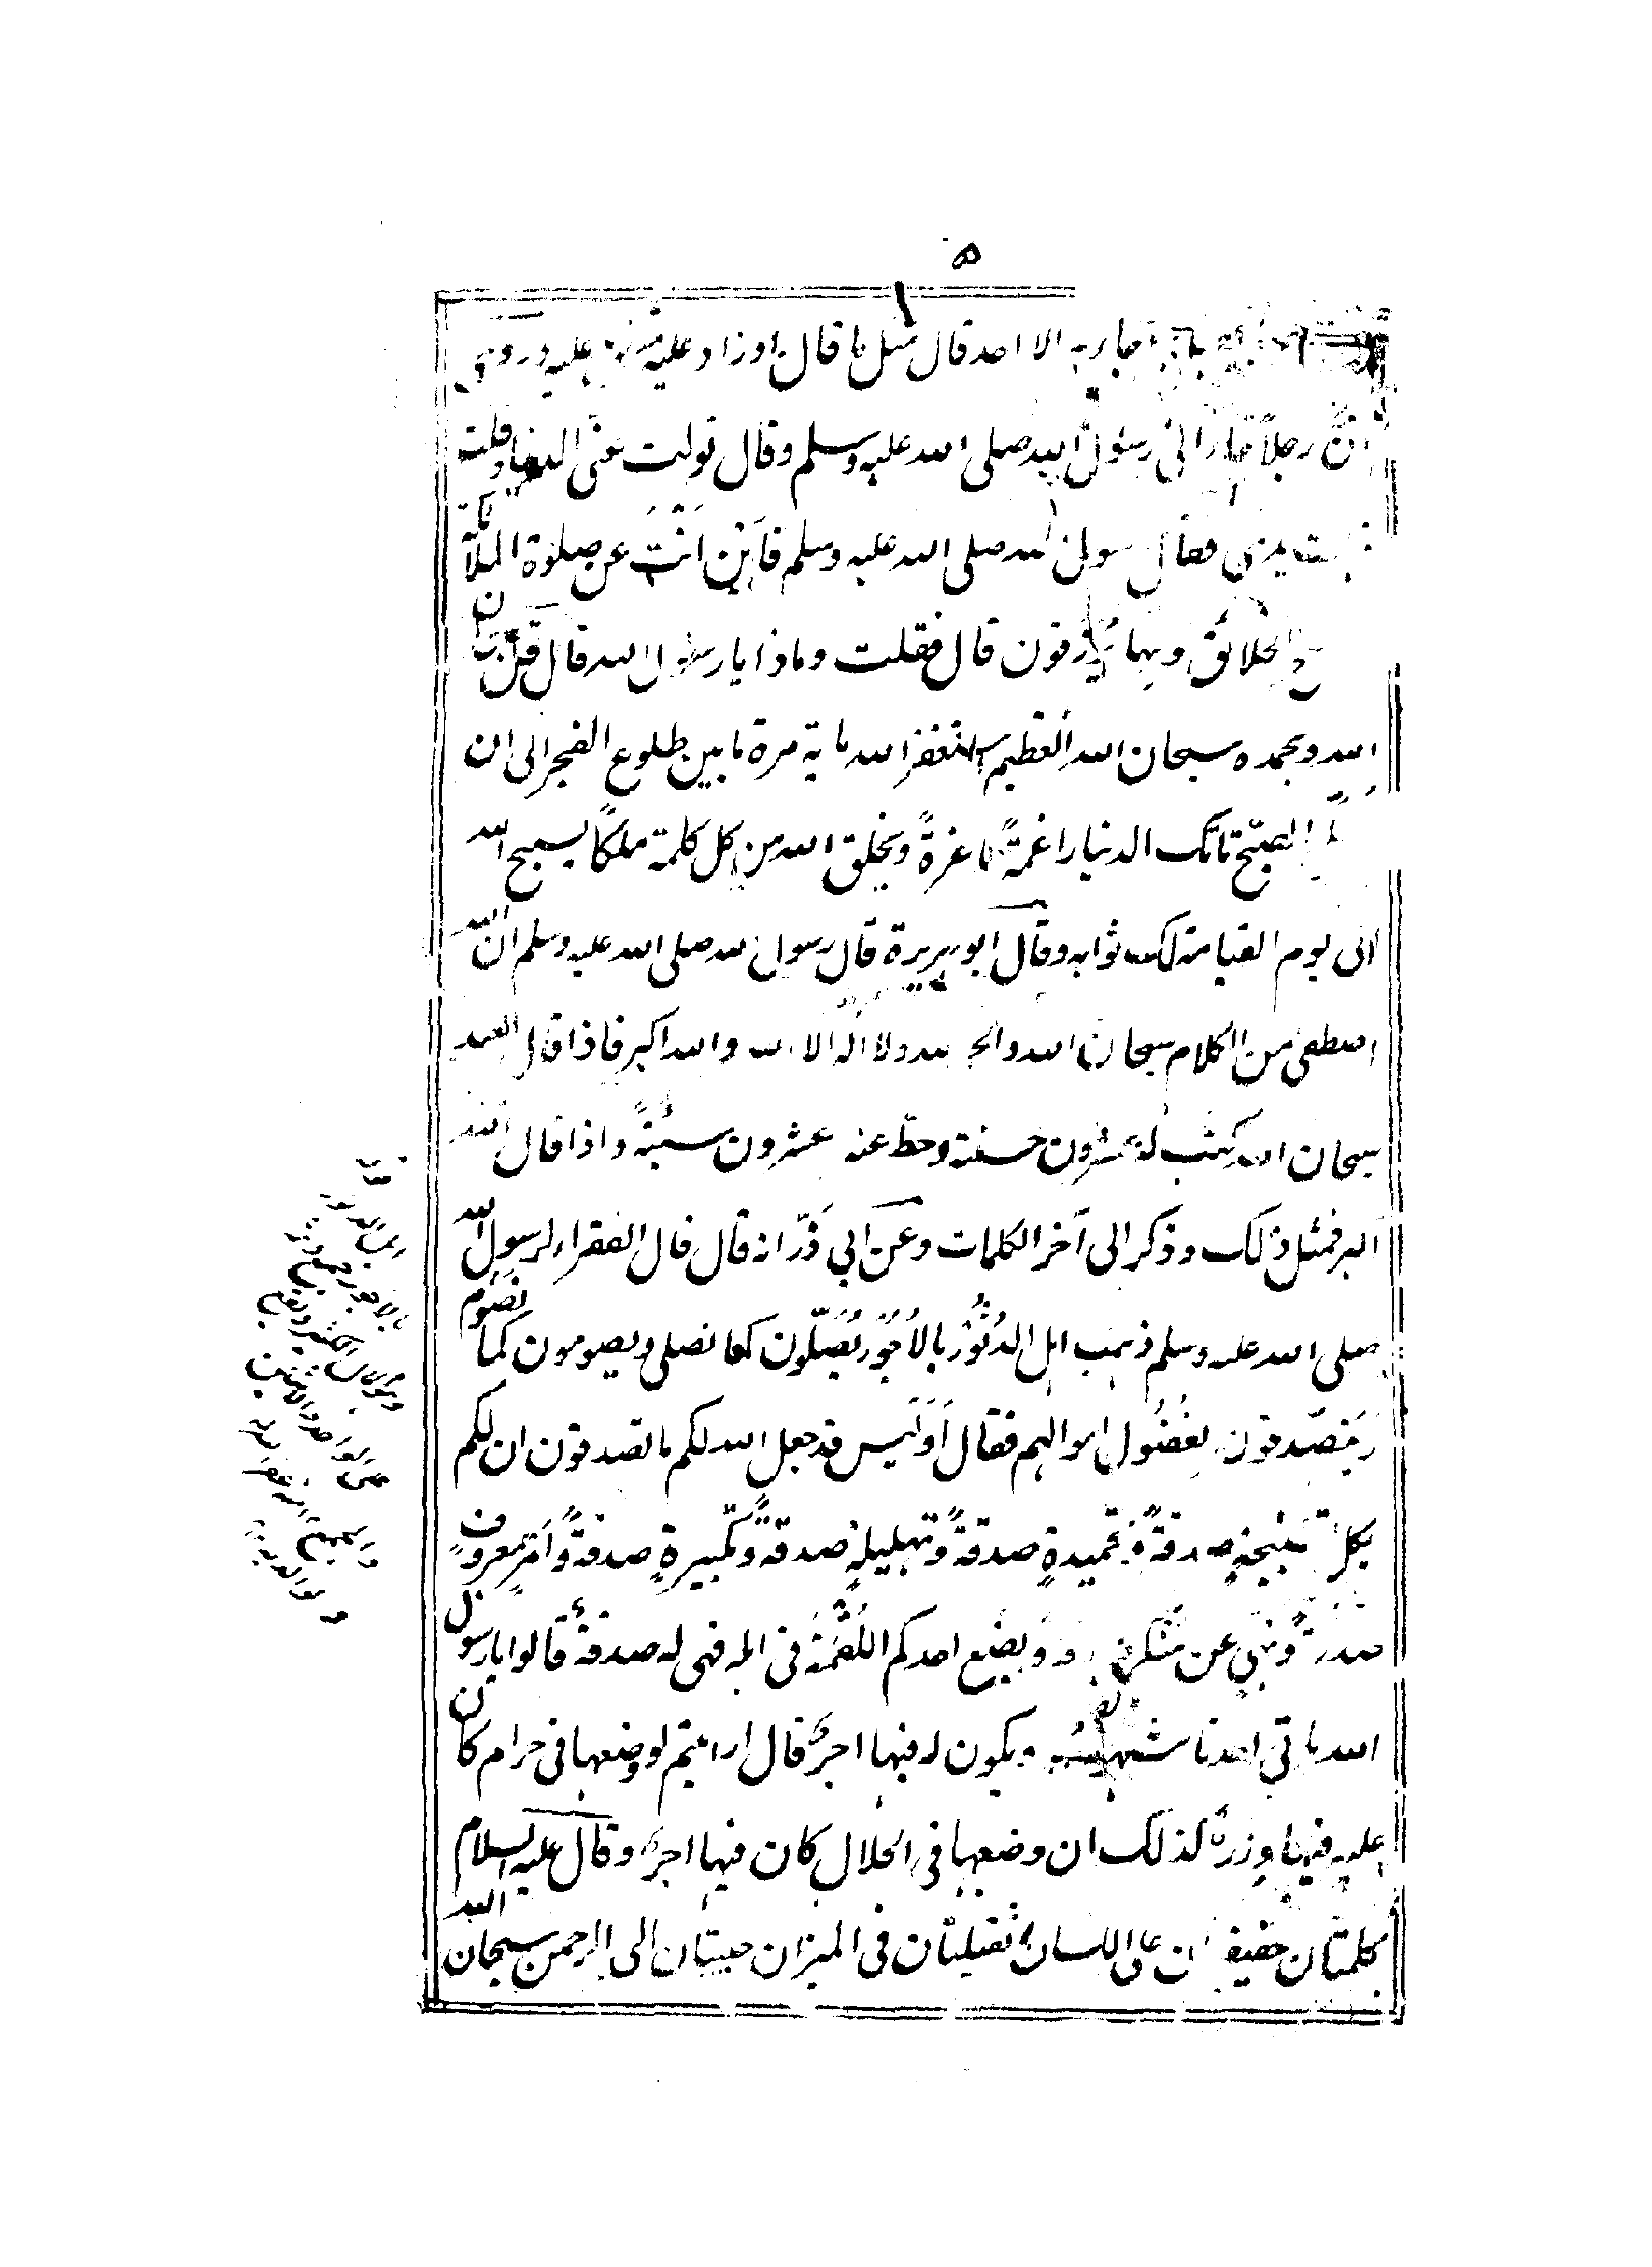 ٥
جاء به الا احد قال مثل ما قال او زاد عليه وروى
انّ رجلاً جاء الى رسول الله صلى الله عليه وسلم وقال تولت عنى الدنيا وقلت
يدى فقال رسول الله صلى الله عليه وسلم فاَين اَنْتَ عن صلوة الملائكة
الخلائق وبها يُرزقون قال فقلت وماذا يا رسول الله قال قل سبحان
الله وبحمده سبحان الله العظيم استغفر الله ماية مرة ما بين طلوع الفجر الى ان
الصبح تاتك الدنيا راغمةً صاغرةً ويخلق الله من كل كلمة ملكاً يسبح الله
الى يوم القيامة لك ثوابه وقال ابو هريرة قال رسول الله صلى الله عليه وسلم ان الله
اصطفى من الكلام سبحان الله والحمد لله ولا اله الا الله والله اكبر فاذا قال العبد
سبحان الله كتب له عشرون حسنة وحطّ عنه عشرون سيئةً واذا قال الله
اكبر فمثل ذلك وذكر الى آخر الكلمات وعن ابي ذرّ انه قال قال الفقراء لرسول الله
صلى الله عليه وسلم ذهب اهل الدُثُور بالاُجُور يُصَلّون كما نصلى ويصومون كما نَصُوم
ويتصّدقون بفُضُول اموالهم فقال اَوَلَيس قد جعل الله لكم ما تصدقون ان لكم
بكل تسبيحةٍ صدقةً وتحميدةٍ صدقةً وتهليلةٍ صدقةً وتكبيرةٍ صدقةً واَمرٍ بمعروفٍ
صدقةً ونهيٍ عن منكرٍ صدقة ويضع احدكم اللُقْمَة فى اهله فهى له صدقةٌ قالوا يا رسول
الله ياتى احدنا شهوته ويكون له فيها اجرٌ قال ارايتم لو وضعها فى حرام كان
عليه فيها وِزرٌ كذلك ان وضعها فى الحلال كان فيها اجرٌ وقال عليه السلام
كلمتان خفيفتان على اللسان ثقيلتان فى الميزان حبيبتان الى الرحمن سبحان الله